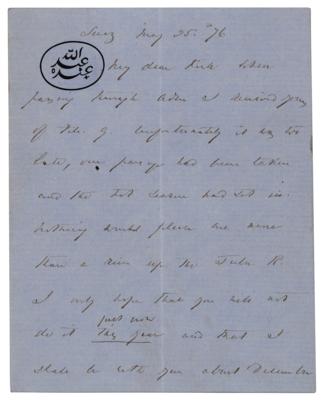 Suez May 25. 76
الله
عبد
عبده
My dear Kirk When
passing through Aden I received yours
of Feb. 9 Unfortunately it was too
late, our passage had been taken
and the hot season had set in.
Nothing would please me more
than a run up the Juba R.
I only hope that you will not
just now
do it this year and that I
shall be with you about December